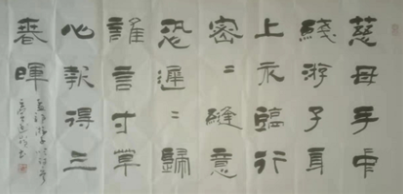 慈母手中
綫游子身
上衣臨行
密〻縫意
恐遲〻歸
誰言寸草
心報得三
春暉